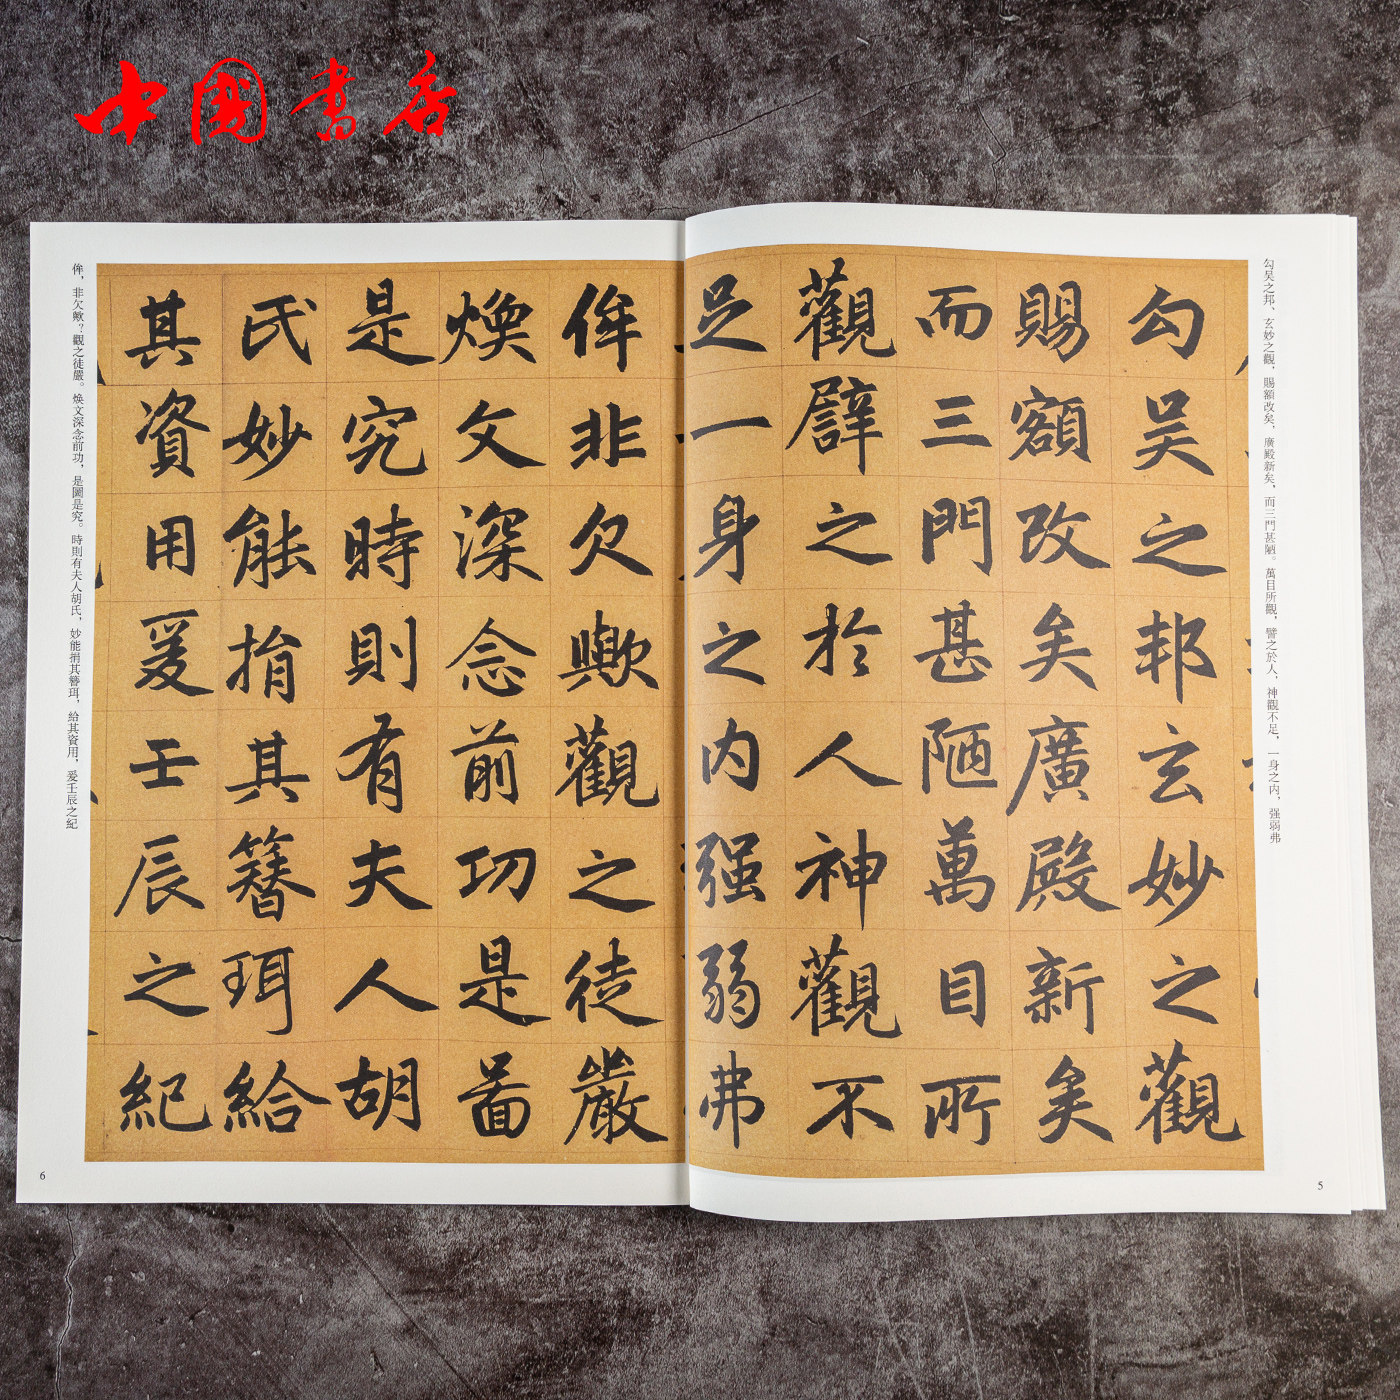 中國書店
勾吴之邦、玄妙之觀，賜額改矣，廣殿新矣，而三門甚陋。萬目所觀，譬之於人，神觀不足，一身之内，强弱弗
勾吴之邦玄妙之觀
賜額改矣廣殿新矣
而三門甚陋萬目所
觀譬之於人神觀不
足一身之内强弱弗
5
侔非欠歟觀之徒嚴
焕文深念前功是啚
是究時則有夫人胡
氏妙能捐其簪珥給
其資用爰壬辰之紀
侔，非欠歟？觀之徒嚴。焕文深念前功，是圖是究。時則有夫人胡氏，妙能捐其簪珥，給其資用，爰壬辰之紀
6